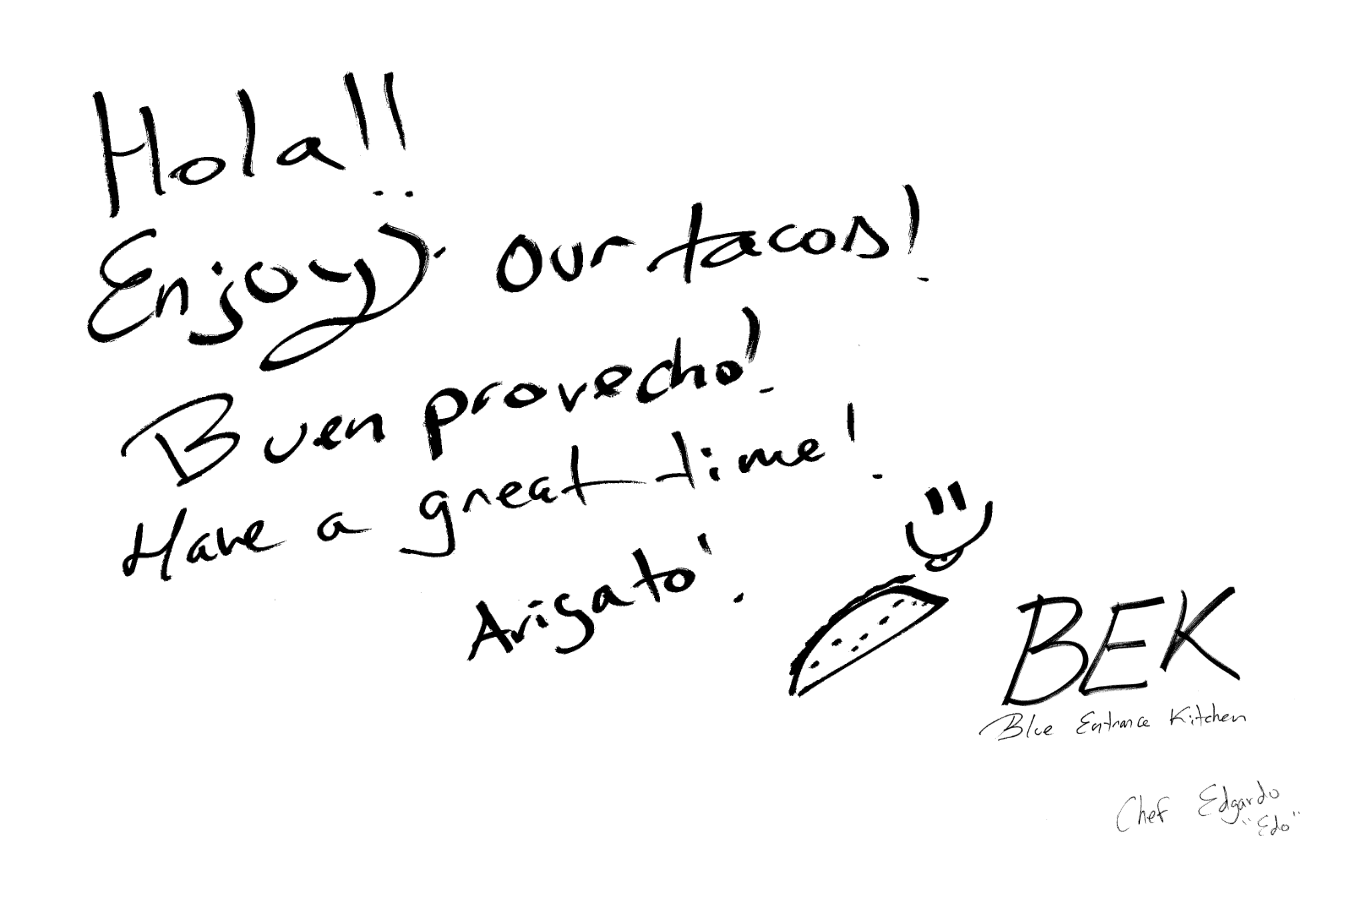 Hola!!
Enjoy our tacos!
Buen provecho!
Have a great time!
Arigato!
BEK
Blue Entrance Kitchen
Chef Edgardo
"Edo"